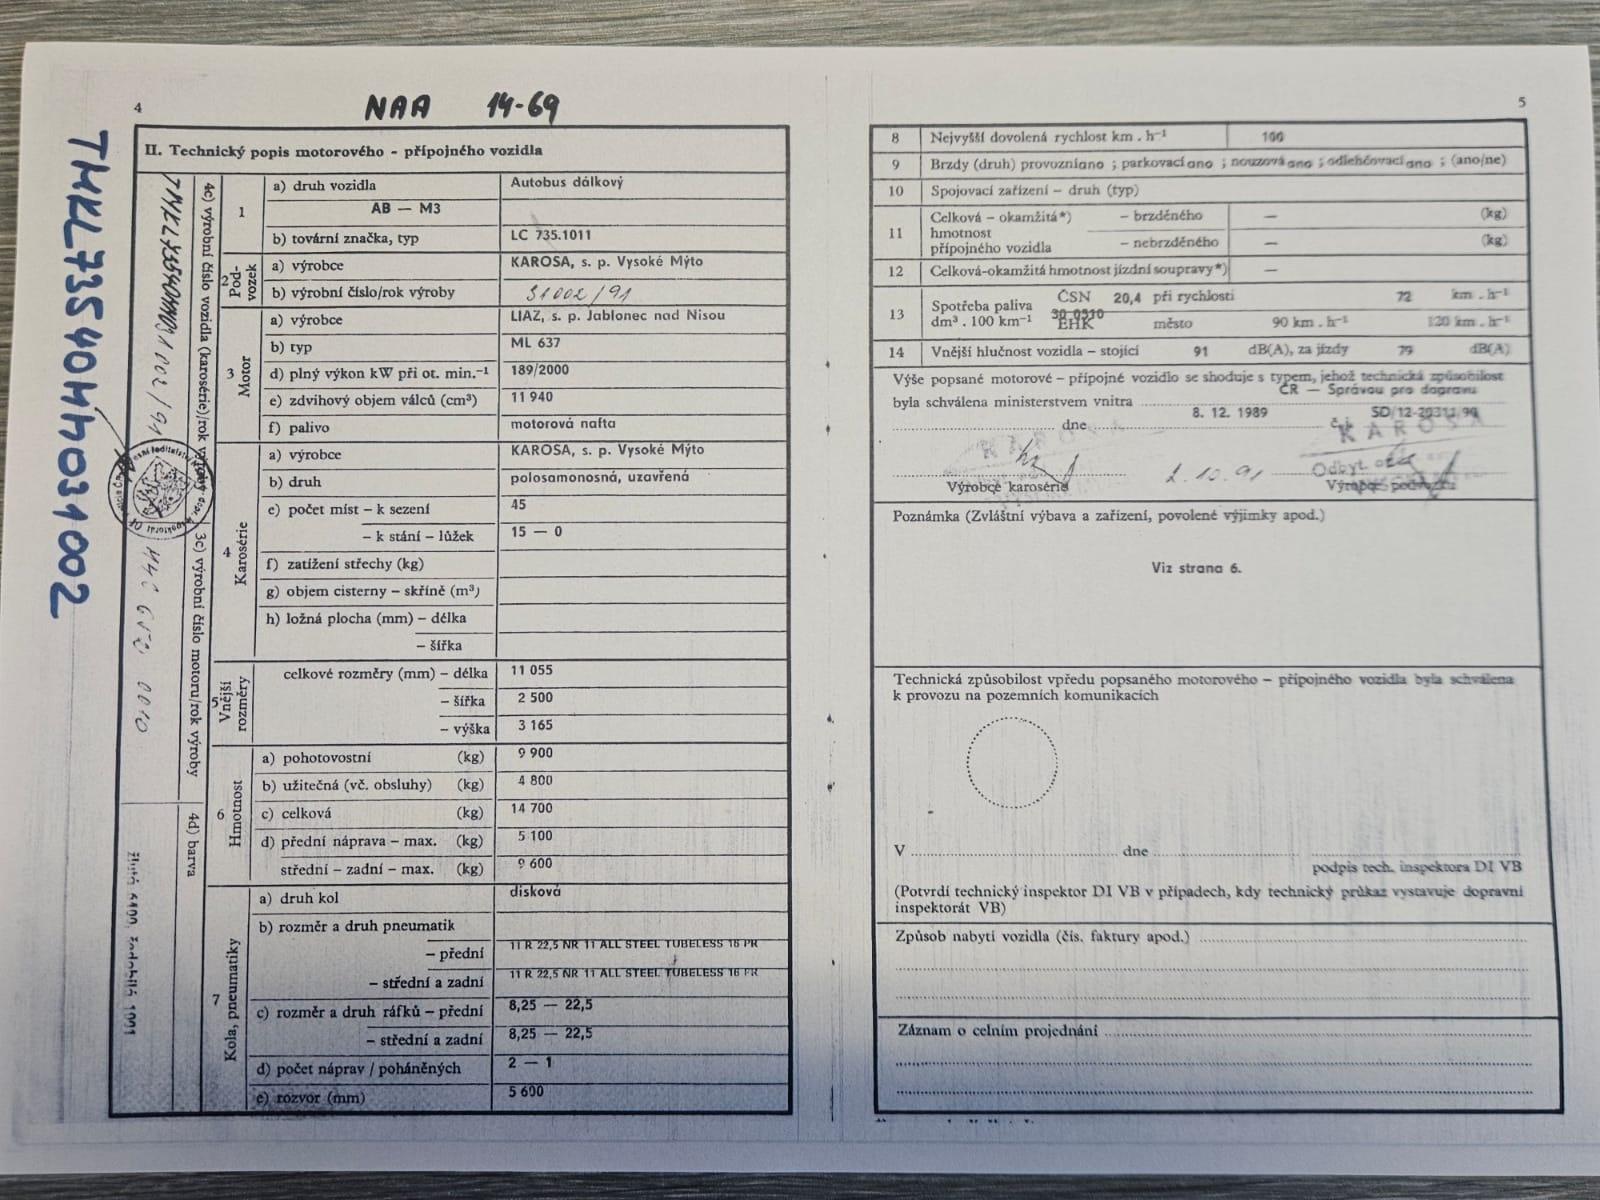 4
NAA 14-69
II. Technický popis motorového - přípojného vozidla
1
a) druh vozidla Autobus dálkový
AB — M3
b) tovární značka, typ LC 735.1011
2 Podvozek
a) výrobce KAROSA, s. p. Vysoké Mýto
b) výrobní číslo/rok výroby 31002/91
3 Motor
a) výrobce LIAZ, s. p. Jablonec nad Nisou
b) typ ML 637
d) plný výkon kW při ot. min.⁻¹ 189/2000
e) zdvihový objem válců (cm³) 11 940
f) palivo motorová nafta
4 Karosérie
a) výrobce KAROSA, s. p. Vysoké Mýto
b) druh polosamonosná, uzavřená
e) počet míst – k sezení 45
– k stání – lůžek 15 — 0
f) zatížení střechy (kg)
g) objem cisterny – skříně (m³)
h) ložná plocha (mm) – délka
– šířka
5 Vnější rozměry
celkové rozměry (mm) – délka 11 055
– šířka 2 500
– výška 3 165
6 Hmotnost
a) pohotovostní (kg) 9 900
b) užitečná (vč. obsluhy) (kg) 4 800
c) celková (kg) 14 700
d) přední náprava – max. (kg) 5 100
střední – zadní – max. (kg) 9 600
7 Kola, pneumatiky
a) druh kol disková
b) rozměr a druh pneumatik
– přední 11 R 22,5 NR 11 ALL STEEL TUBELESS 16 PR
– střední a zadní 11 R 22,5 NR 11 ALL STEEL TUBELESS 16 PR
c) rozměr a druh ráfků – přední 8,25 — 22,5
– střední a zadní 8,25 — 22,5
d) počet náprav / poháněných 2 — 1
e) rozvor (mm) 5 600
4c) výrobní číslo vozidla (karosérie)/rok výroby
3c) výrobní číslo motoru/rok výroby
4d) barva
TMKL73540MM031002
5
8 Nejvyšší dovolená rychlost km . h⁻¹ 100
9 Brzdy (druh) provozní ano ; parkovací ano ; nouzová ano ; odlehčovací ano ; (ano/ne)
10 Spojovací zařízení – druh (typ)
11 Celková – okamžitá*) hmotnost přípojného vozidla
– brzděného — (kg)
– nebrzděného — (kg)
12 Celková-okamžitá hmotnost jízdní soupravy*) —
13 Spotřeba paliva dm³ . 100 km⁻¹
ČSN 20,4 při rychlosti 72 km . h⁻¹
30 0510
EHK město 90 km . h⁻¹ 120 km . h⁻¹
14 Vnější hlučnost vozidla – stojící 91 dB(A), za jízdy 79 dB(A)
Výše popsané motorové – přípojné vozidlo se shoduje s typem, jehož technická způsobilost
ČR — Správou pro dopravu
byla schválena ministerstvem vnitra
dne 8. 12. 1989 č. j.
KAROSA
Odbyt
2.10.91
Výrobce karosérie
Výrobce podvozku
Poznámka (Zvláštní výbava a zařízení, povolené výjimky apod.)
Viz strana 6.
Technická způsobilost vpředu popsaného motorového – přípojného vozidla byla schválena
k provozu na pozemních komunikacích
V dne
podpis tech. inspektora DI VB
(Potvrdí technický inspektor DI VB v případech, kdy technický průkaz vystavuje dopravní
inspektorát VB)
Způsob nabytí vozidla (čís. faktury apod.)
Záznam o celním projednání